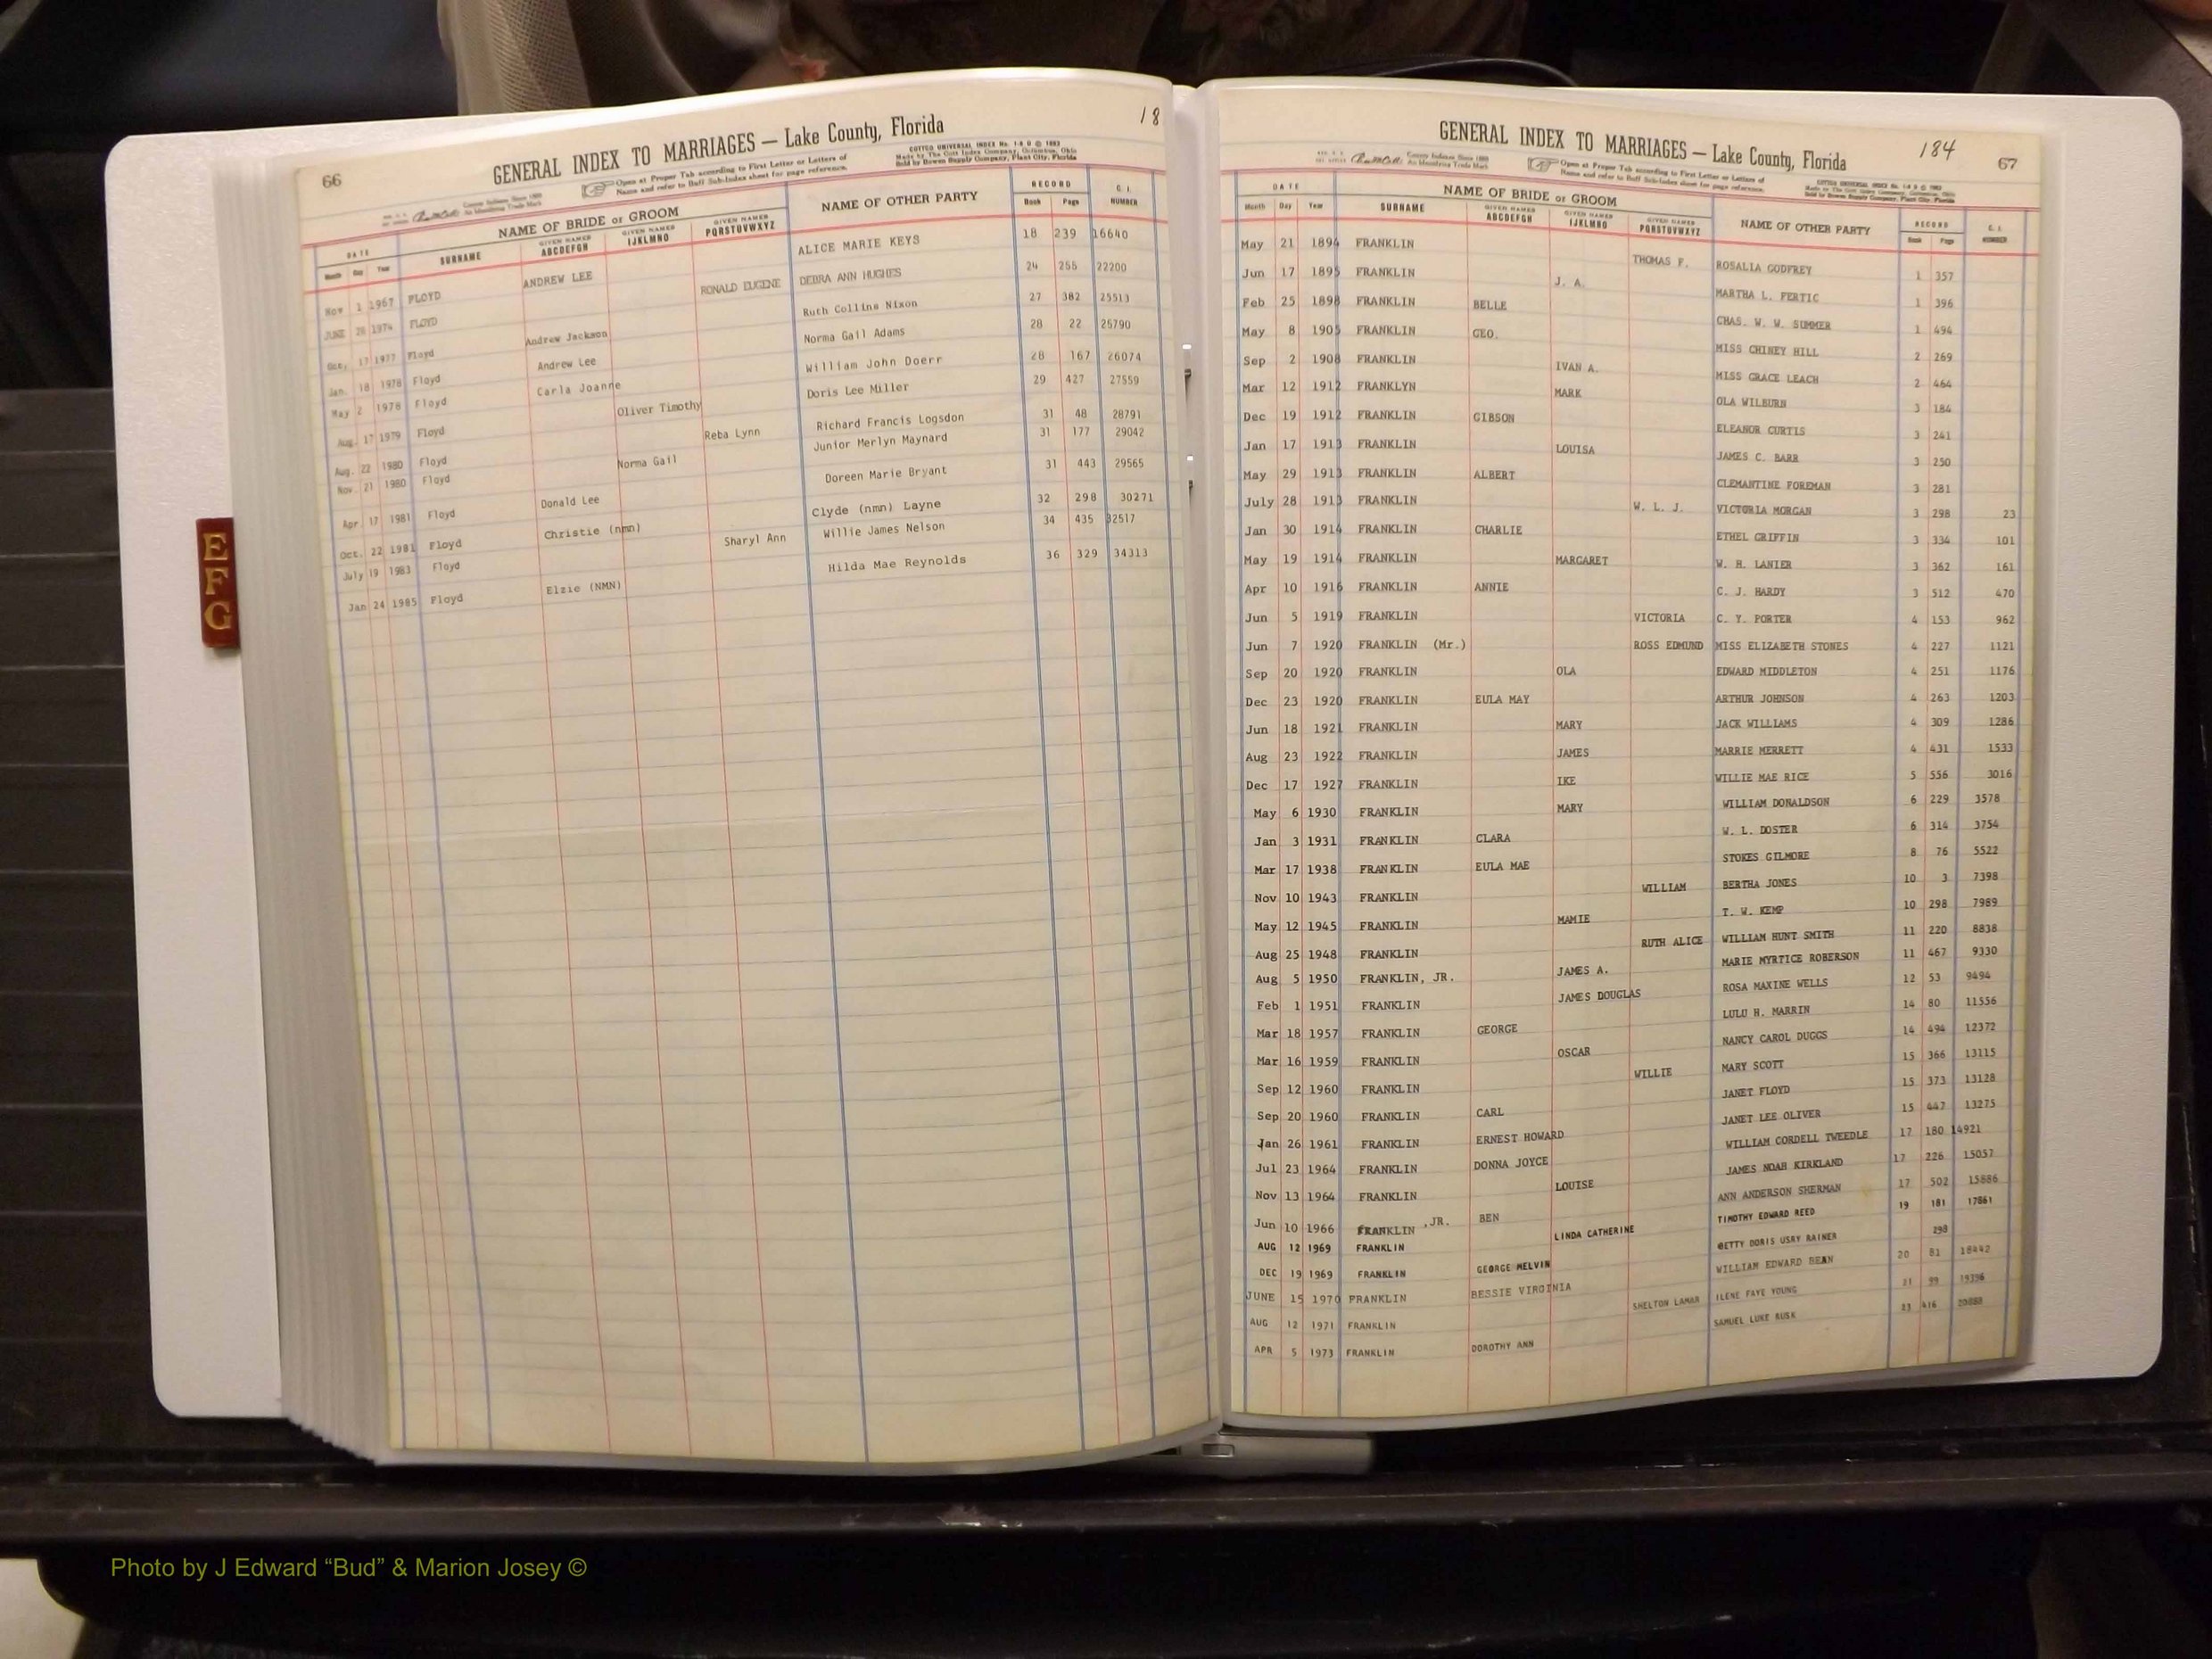 66
GENERAL INDEX TO MARRIAGES — Lake County, Florida
18
COTTCO UNIVERSAL INDEX
Made by The Cott Index Company, Columbus, Ohio
Sold by Bowen Supply Company, Plant City, Florida
County Indexes Since 1888
An Identifying Trade Mark
Open at Proper Tab according to First Letter or Letters of
Name and refer to Buff Sub-Index sheet for page reference.
DATE NAME OF BRIDE or GROOM NAME OF OTHER PARTY RECORD C. I.
Month Day Year SURNAME GIVEN NAMES ABCDEFGH GIVEN NAMES IJKLMNO GIVEN NAMES PQRSTUVWXYZ Book Page NUMBER
Nov 1 1967 FLOYD ANDREW LEE ALICE MARIE KEYS 18 239 16640
JUNE 28 1974 FLOYD RONALD EUGENE DEBRA ANN HUGHES 24 255 22200
Oct. 17 1977 Floyd Andrew Jackson Ruth Collins Nixon 27 382 25513
Jan. 18 1978 Floyd Andrew Lee Norma Gail Adams 28 22 25790
May 2 1978 Floyd Carla Joanne William John Doerr 28 167 26074
Aug. 17 1979 Floyd Oliver Timothy Doris Lee Miller 29 427 27559
Aug. 22 1980 Floyd Reba Lynn Richard Francis Logsdon 31 48 28791
Nov. 21 1980 Floyd Norma Gail Junior Merlyn Maynard 31 177 29042
Apr 17 1981 Floyd Donald Lee Doreen Marie Bryant 31 443 29565
Oct. 22 1981 Floyd Christie (nmn) Clyde (nmn) Layne 32 298 30271
July 19 1983 Floyd Sharyl Ann Willie James Nelson 34 435 32517
Jan 24 1985 Floyd Elzie (NMN) Hilda Mae Reynolds 36 329 34313
E
F
G
GENERAL INDEX TO MARRIAGES — Lake County, Florida
184
67
County Indexes Since 1888
An Identifying Trade Mark
Open at Proper Tab according to First Letter or Letters of
Name and refer to Buff Sub-Index sheet for page reference.
COTTCO UNIVERSAL INDEX
Made by The Cott Index Company, Columbus, Ohio
Sold by Bowen Supply Company, Plant City, Florida
DATE NAME OF BRIDE or GROOM NAME OF OTHER PARTY RECORD C. I.
Month Day Year SURNAME GIVEN NAMES ABCDEFGH GIVEN NAMES IJKLMNO GIVEN NAMES PQRSTUVWXYZ Book Page NUMBER
May 21 1894 FRANKLIN THOMAS F. ROSALIA GODFREY 1 357
Jun 17 1895 FRANKLIN J. A. MARTHA L. FERTIC 1 396
Feb 25 1898 FRANKLIN BELLE CHAS. W. W. SUMMER 1 494
May 8 1905 FRANKLIN GEO. MISS CHINEY HILL 2 269
Sep 2 1908 FRANKLIN IVAN A. MISS GRACE LEACH 2 464
Mar 12 1912 FRANKLYN MARK OLA WILBURN 3 184
Dec 19 1912 FRANKLIN GIBSON ELEANOR CURTIS 3 241
Jan 17 1913 FRANKLIN LOUISA JAMES C. BARR 3 250
May 29 1913 FRANKLIN ALBERT CLEMANTINE FOREMAN 3 281
July 28 1913 FRANKLIN W. L. J. VICTORIA MORGAN 3 298 23
Jan 30 1914 FRANKLIN CHARLIE ETHEL GRIFFIN 3 334 101
May 19 1914 FRANKLIN MARGARET W. H. LANIER 3 362 161
Apr 10 1916 FRANKLIN ANNIE C. J. HARDY 3 512 470
Jun 5 1919 FRANKLIN VICTORIA C. Y. PORTER 4 153 962
Jun 7 1920 FRANKLIN (Mr.) ROSS EDMUND MISS ELIZABETH STONES 4 227 1121
Sep 20 1920 FRANKLIN OLA EDWARD MIDDLETON 4 251 1176
Dec 23 1920 FRANKLIN EULA MAY ARTHUR JOHNSON 4 263 1203
Jun 18 1921 FRANKLIN MARY JACK WILLIAMS 4 309 1286
Aug 23 1922 FRANKLIN JAMES MARRIE MERRETT 4 431 1533
Dec 17 1927 FRANKLIN IKE WILLIE MAE RICE 5 556 3016
May 6 1930 FRANKLIN MARY WILLIAM DONALDSON 6 229 3578
Jan 3 1931 FRANKLIN CLARA W. L. DOSTER 6 314 3754
Mar 17 1938 FRANKLIN EULA MAE STOKES GILMORE 8 76 5522
Nov 10 1943 FRANKLIN WILLIAM BERTHA JONES 10 3 7398
May 12 1945 FRANKLIN MAMIE T. W. KEMP 10 298 7989
Aug 25 1948 FRANKLIN RUTH ALICE WILLIAM HUNT SMITH 11 220 8838
Aug 5 1950 FRANKLIN, JR. JAMES A. MARIE MYRTICE ROBERSON 11 467 9330
Feb 1 1951 FRANKLIN JAMES DOUGLAS ROSA MAXINE WELLS 12 53 9494
Mar 18 1957 FRANKLIN GEORGE LULU H. MARRIN 14 80 11556
Mar 16 1959 FRANKLIN OSCAR NANCY CAROL DUGGS 14 494 12372
Sep 12 1960 FRANKLIN WILLIE MARY SCOTT 15 366 13115
Sep 20 1960 FRANKLIN CARL JANET FLOYD 15 373 13128
Jan 26 1961 FRANKLIN ERNEST HOWARD JANET LEE OLIVER 15 447 13275
Jul 23 1964 FRANKLIN DONNA JOYCE WILLIAM CORDELL TWEEDLE 17 180 14921
Nov 13 1964 FRANKLIN LOUISE JAMES NOAH KIRKLAND 17 226 15057
Jun 10 1966 FRANKLIN ,JR. BEN ANN ANDERSON SHERMAN 17 502 15886
AUG 12 1969 FRANKLIN LINDA CATHERINE TIMOTHY EDWARD REED 19 181 17861
DEC 19 1969 FRANKLIN GEORGE MELVIN BETTY DORIS USRY RAINER 298
JUNE 15 1970 FRANKLIN BESSIE VIRGINIA WILLIAM EDWARD BEAN 20 81 18442
AUG 12 1971 FRANKLIN SHELTON LAMAR ILENE FAYE YOUNG 21 99 19396
APR 5 1973 FRANKLIN DOROTHY ANN SAMUEL LUKE RUSK 23 416
Photo by J Edward “Bud” & Marion Josey ©